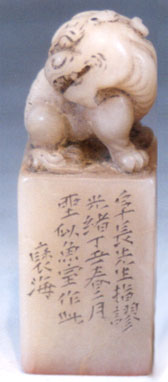 子長先生指謬
光緒丁丑春二月
似魚室作此
褱海